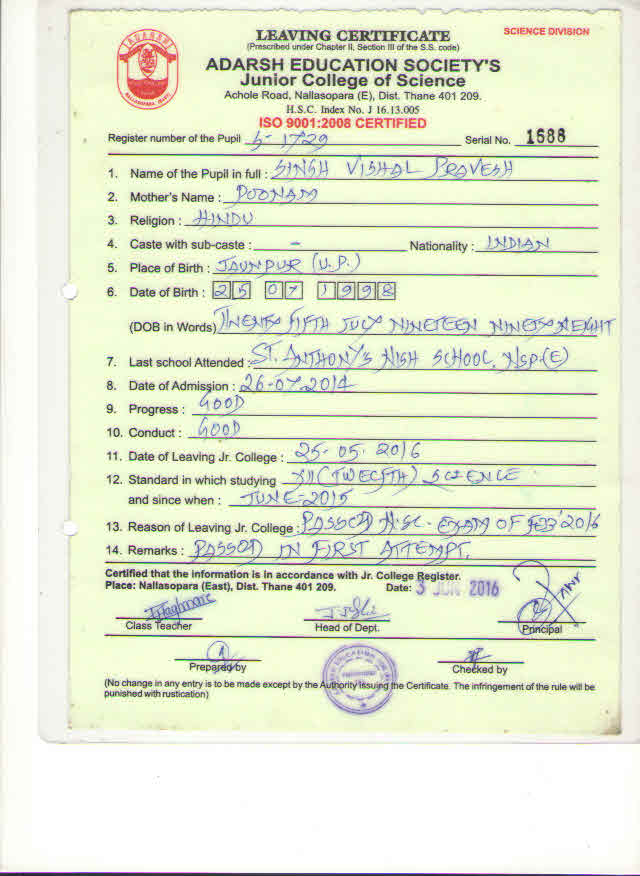 LEAVING CERTIFICATE
SCIENCE DIVISION
(Prescribed under Chapter II, Section III of the S.S. code)
ADARSH EDUCATION SOCIETY'S
Junior College of Science
Achole Road, Nallasopara (E), Dist. Thane 401 209.
H.S.C. Index No. J 16.13.005
ISO 9001:2008 CERTIFIED
Register number of the Pupil S-1729 Serial No. 1688
1. Name of the Pupil in full : SINGH VISHAL PRAVESH
2. Mother's Name : POONAM
3. Religion : HINDU
4. Caste with sub-caste : - Nationality : INDIAN
5. Place of Birth : JAUNPUR (U.P.)
6. Date of Birth : 25 07 1998
(DOB in Words) TWENTY FIFTH JULY NINETEEN NINETY EIGHT
7. Last school Attended : ST. ANTHONY'S HIGH SCHOOL, NSP.(E)
8. Date of Admission : 26-07-2014
9. Progress : GOOD
10. Conduct : GOOD
11. Date of Leaving Jr. College : 25-05-2016
12. Standard in which studying XII (TWELFTH) SCIENCE
and since when : JUNE-2015
13. Reason of Leaving Jr. College : PASSED H.SC. EXAM OF FEB'2016
14. Remarks : PASSED IN FIRST ATTEMPT.
Certified that the information is in accordance with Jr. College Register.
Place: Nallasopara (East), Dist. Thane 401 209. Date: 3 JUN 2016
Class Teacher Head of Dept. Principal
Prepared by Checked by
(No change in any entry is to be made except by the Authority issuing the Certificate. The infringement of the rule will be
punished with rustication)